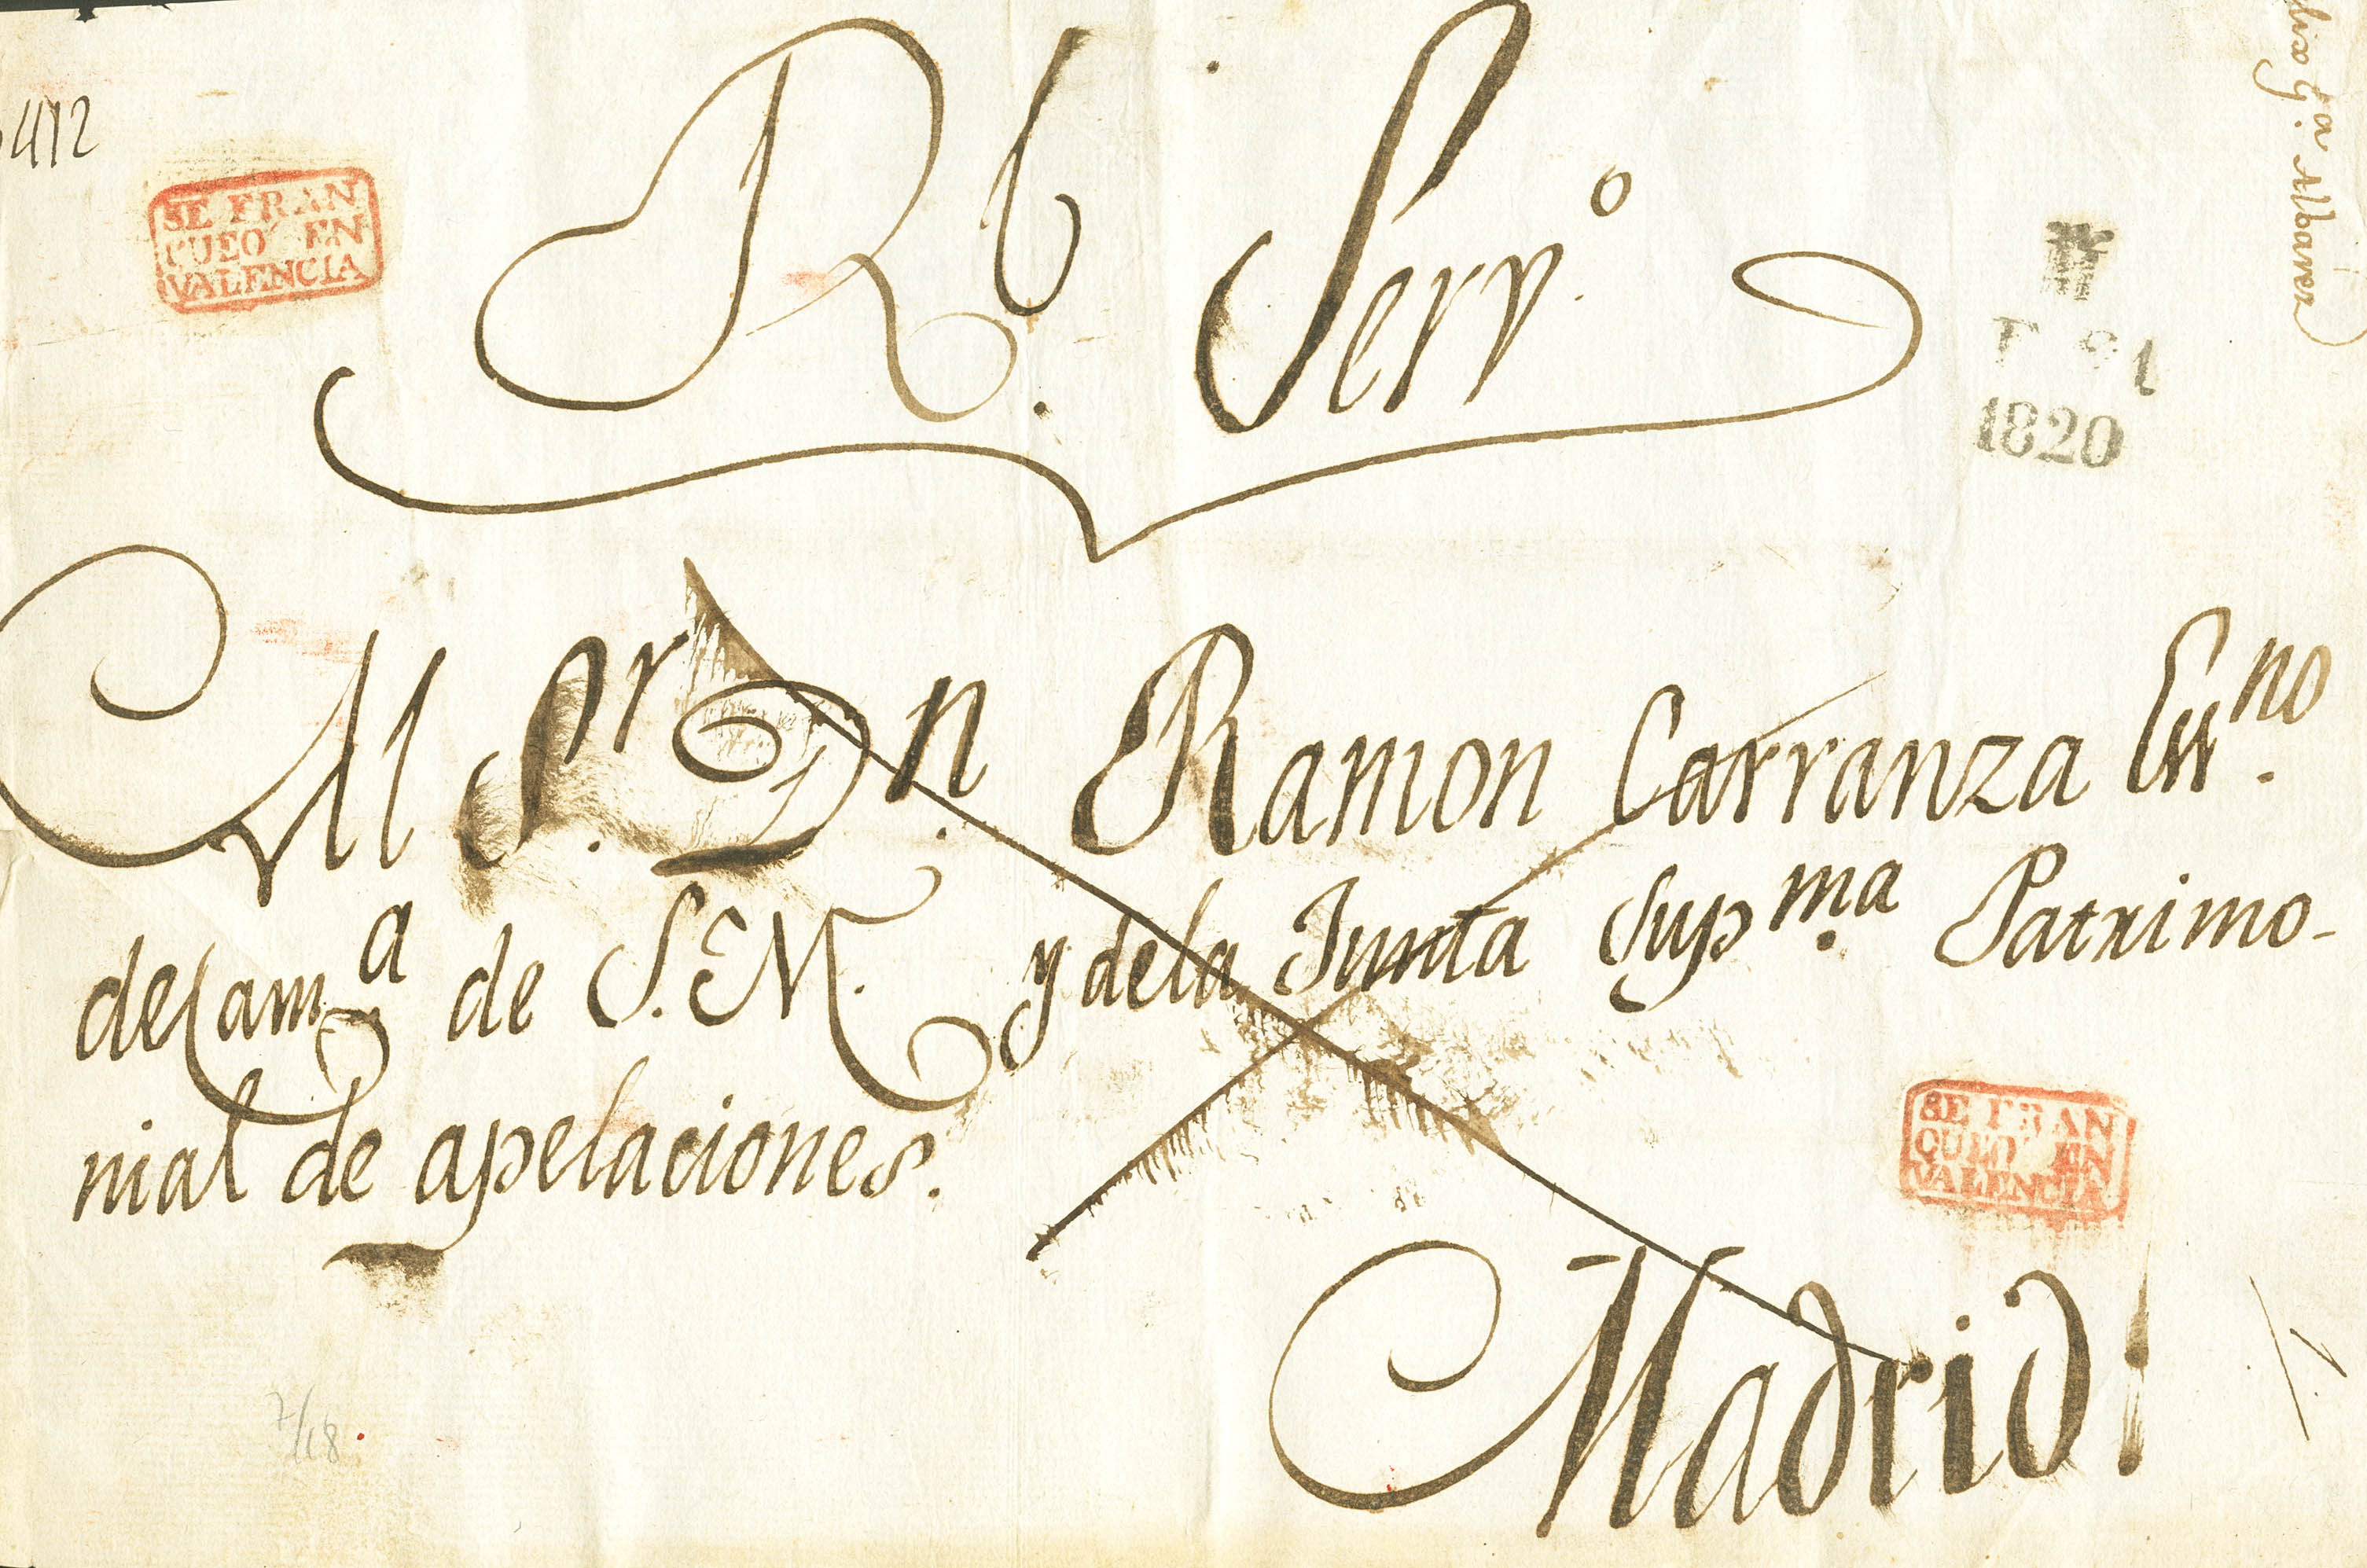 412
SE FRAN
QUEO EN
VALENCIA
Rl. Serv.o
1820
Al Sr. Dn. Ramon Carranza Essno.
de Cama de S. M. y dela Junta Supma. Patrimo-
nial de apelaciones.
SE FRAN
QUEO EN
VALENCIA
Madrid
7/18